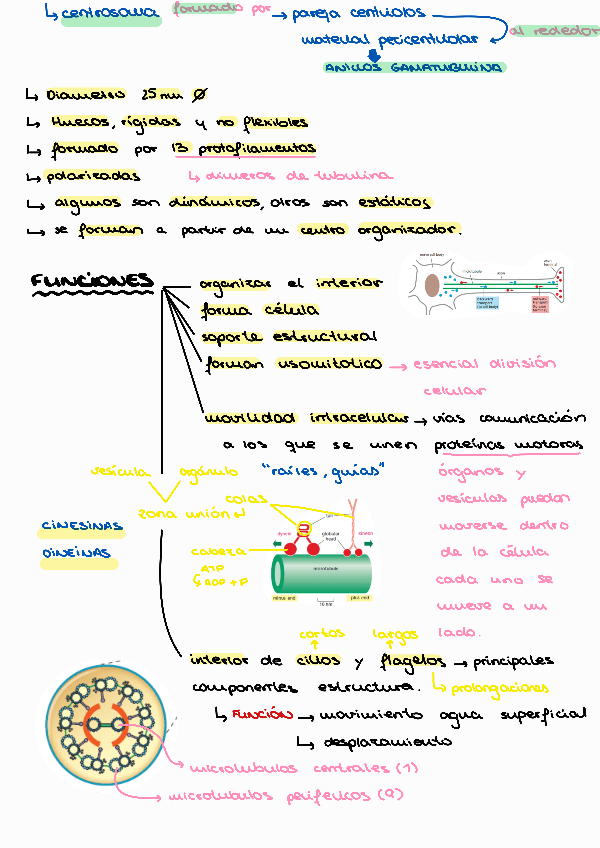 ↳ centrosoma formado por → pareja centriolos
material pericentriolar
al rededor
ANILLOS GAMATUBULINA
↳ Diametro 25 nm Ø
↳ Huecos, rígidos y no flexibles
↳ formado por 13 protofilamentos
↳ polarizadas ↳ dímeros de tubulina
↳ algunos son dinámicos, otros son estáticos
↳ se forman a partir de un centro organizador.
FUNCIONES
organizar el interior
forma célula
soporte estructural
forman usomitotico → esencial división
celular
movilidad intracelular → vías comunicación
a los que se unen proteínas motoras
nerve cell body
microtubule
axon
axon terminal
vesícula orgánulo "raíles, guías"
órganos y
vesículas puedan
moverse dentro
de la célula
cada uno se
mueve a un
lado.
zona unión
colas
CINESINAS
DINEINAS
cabeza
ATP
↳ ADP + P
tail
dynein
globular head
kinesin
microtubule
minus end
plus end
10 nm
cortos largos
interior de cilios y flagelos → principales
componentes estructura. ↳ prolongaciones
↳ FUNCIÓN → movimiento agua superficial
↳ desplazamiento
microtubulos centrales (1)
microtubulos periféricos (9)